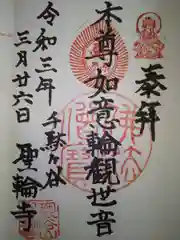 奉拝
本尊如意輪観世音
千駄ヶ谷
聖輪寺
令和三年
三月廿六日